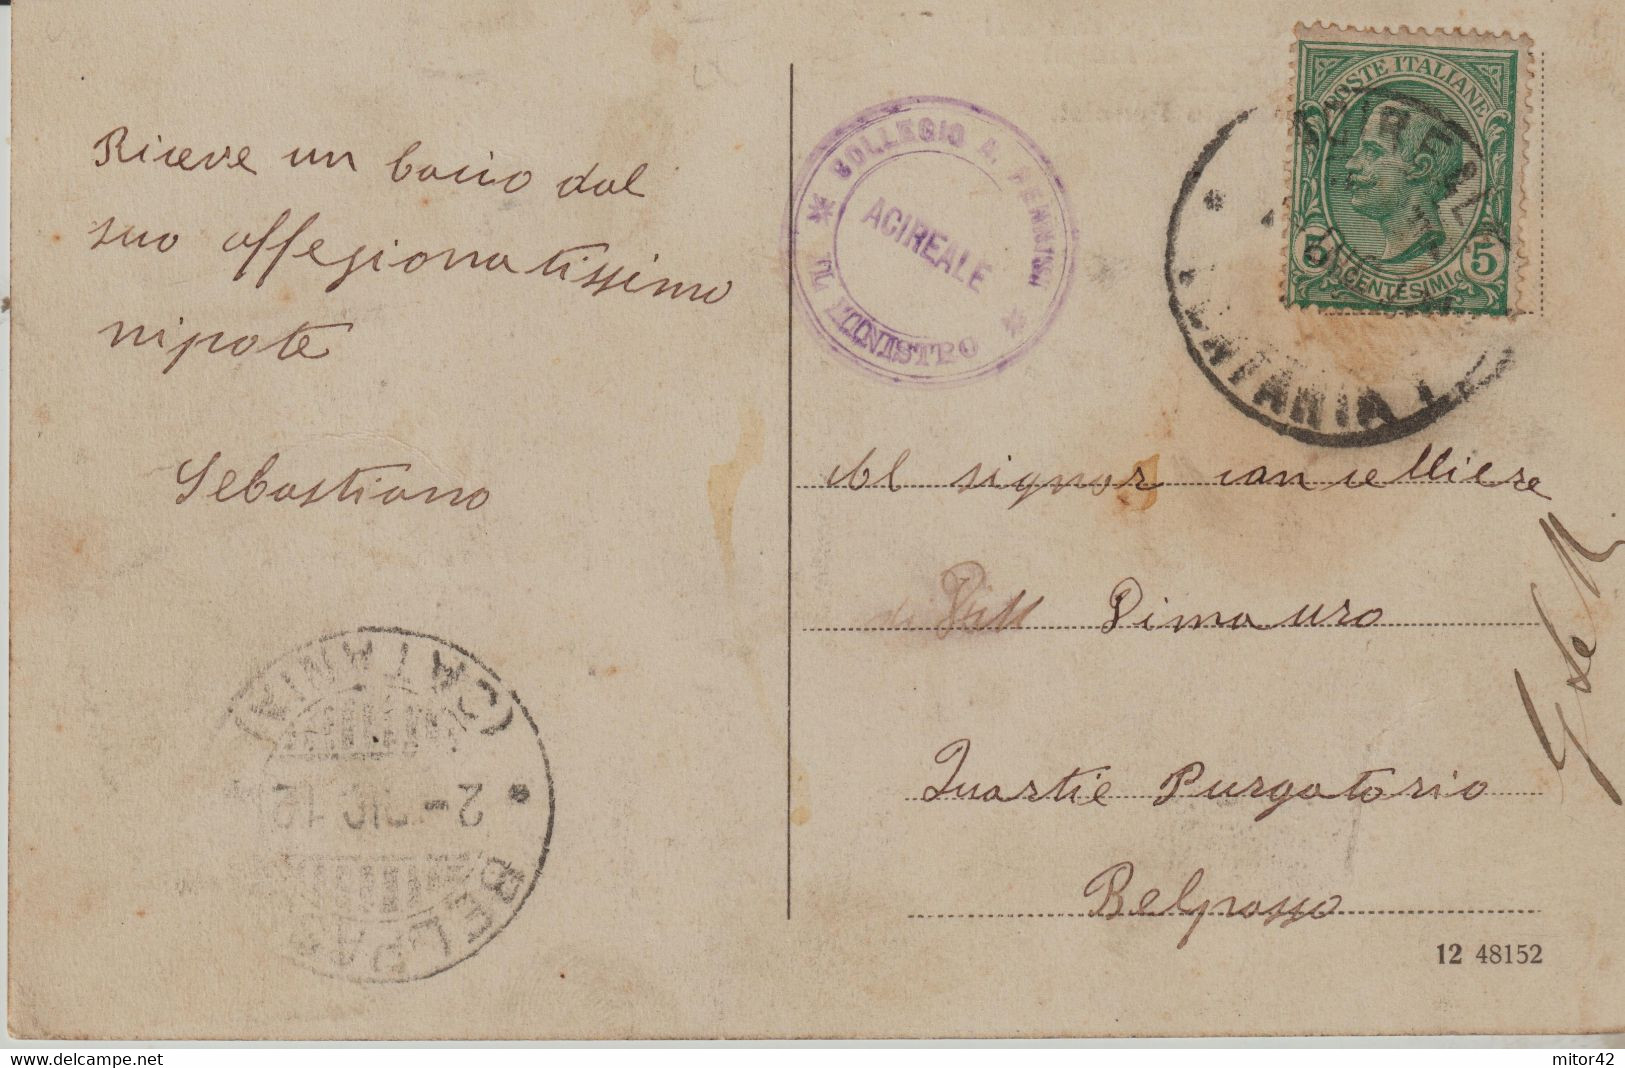 Riceve un bacio dal
suo affegionatissimo
nipote
Sebastiano
COLLEGIO A. PENNISI
ACIREALE
IL MINISTRO
POSTE ITALIANE
5 CENTESIMI 5
ACIREALE
Al signor cancelliere
di Dimauro
Quartie Purgatorio
Belpasso
12 48152
(CATANIA)
2 - DIC 12
BELPASSO
mitor42